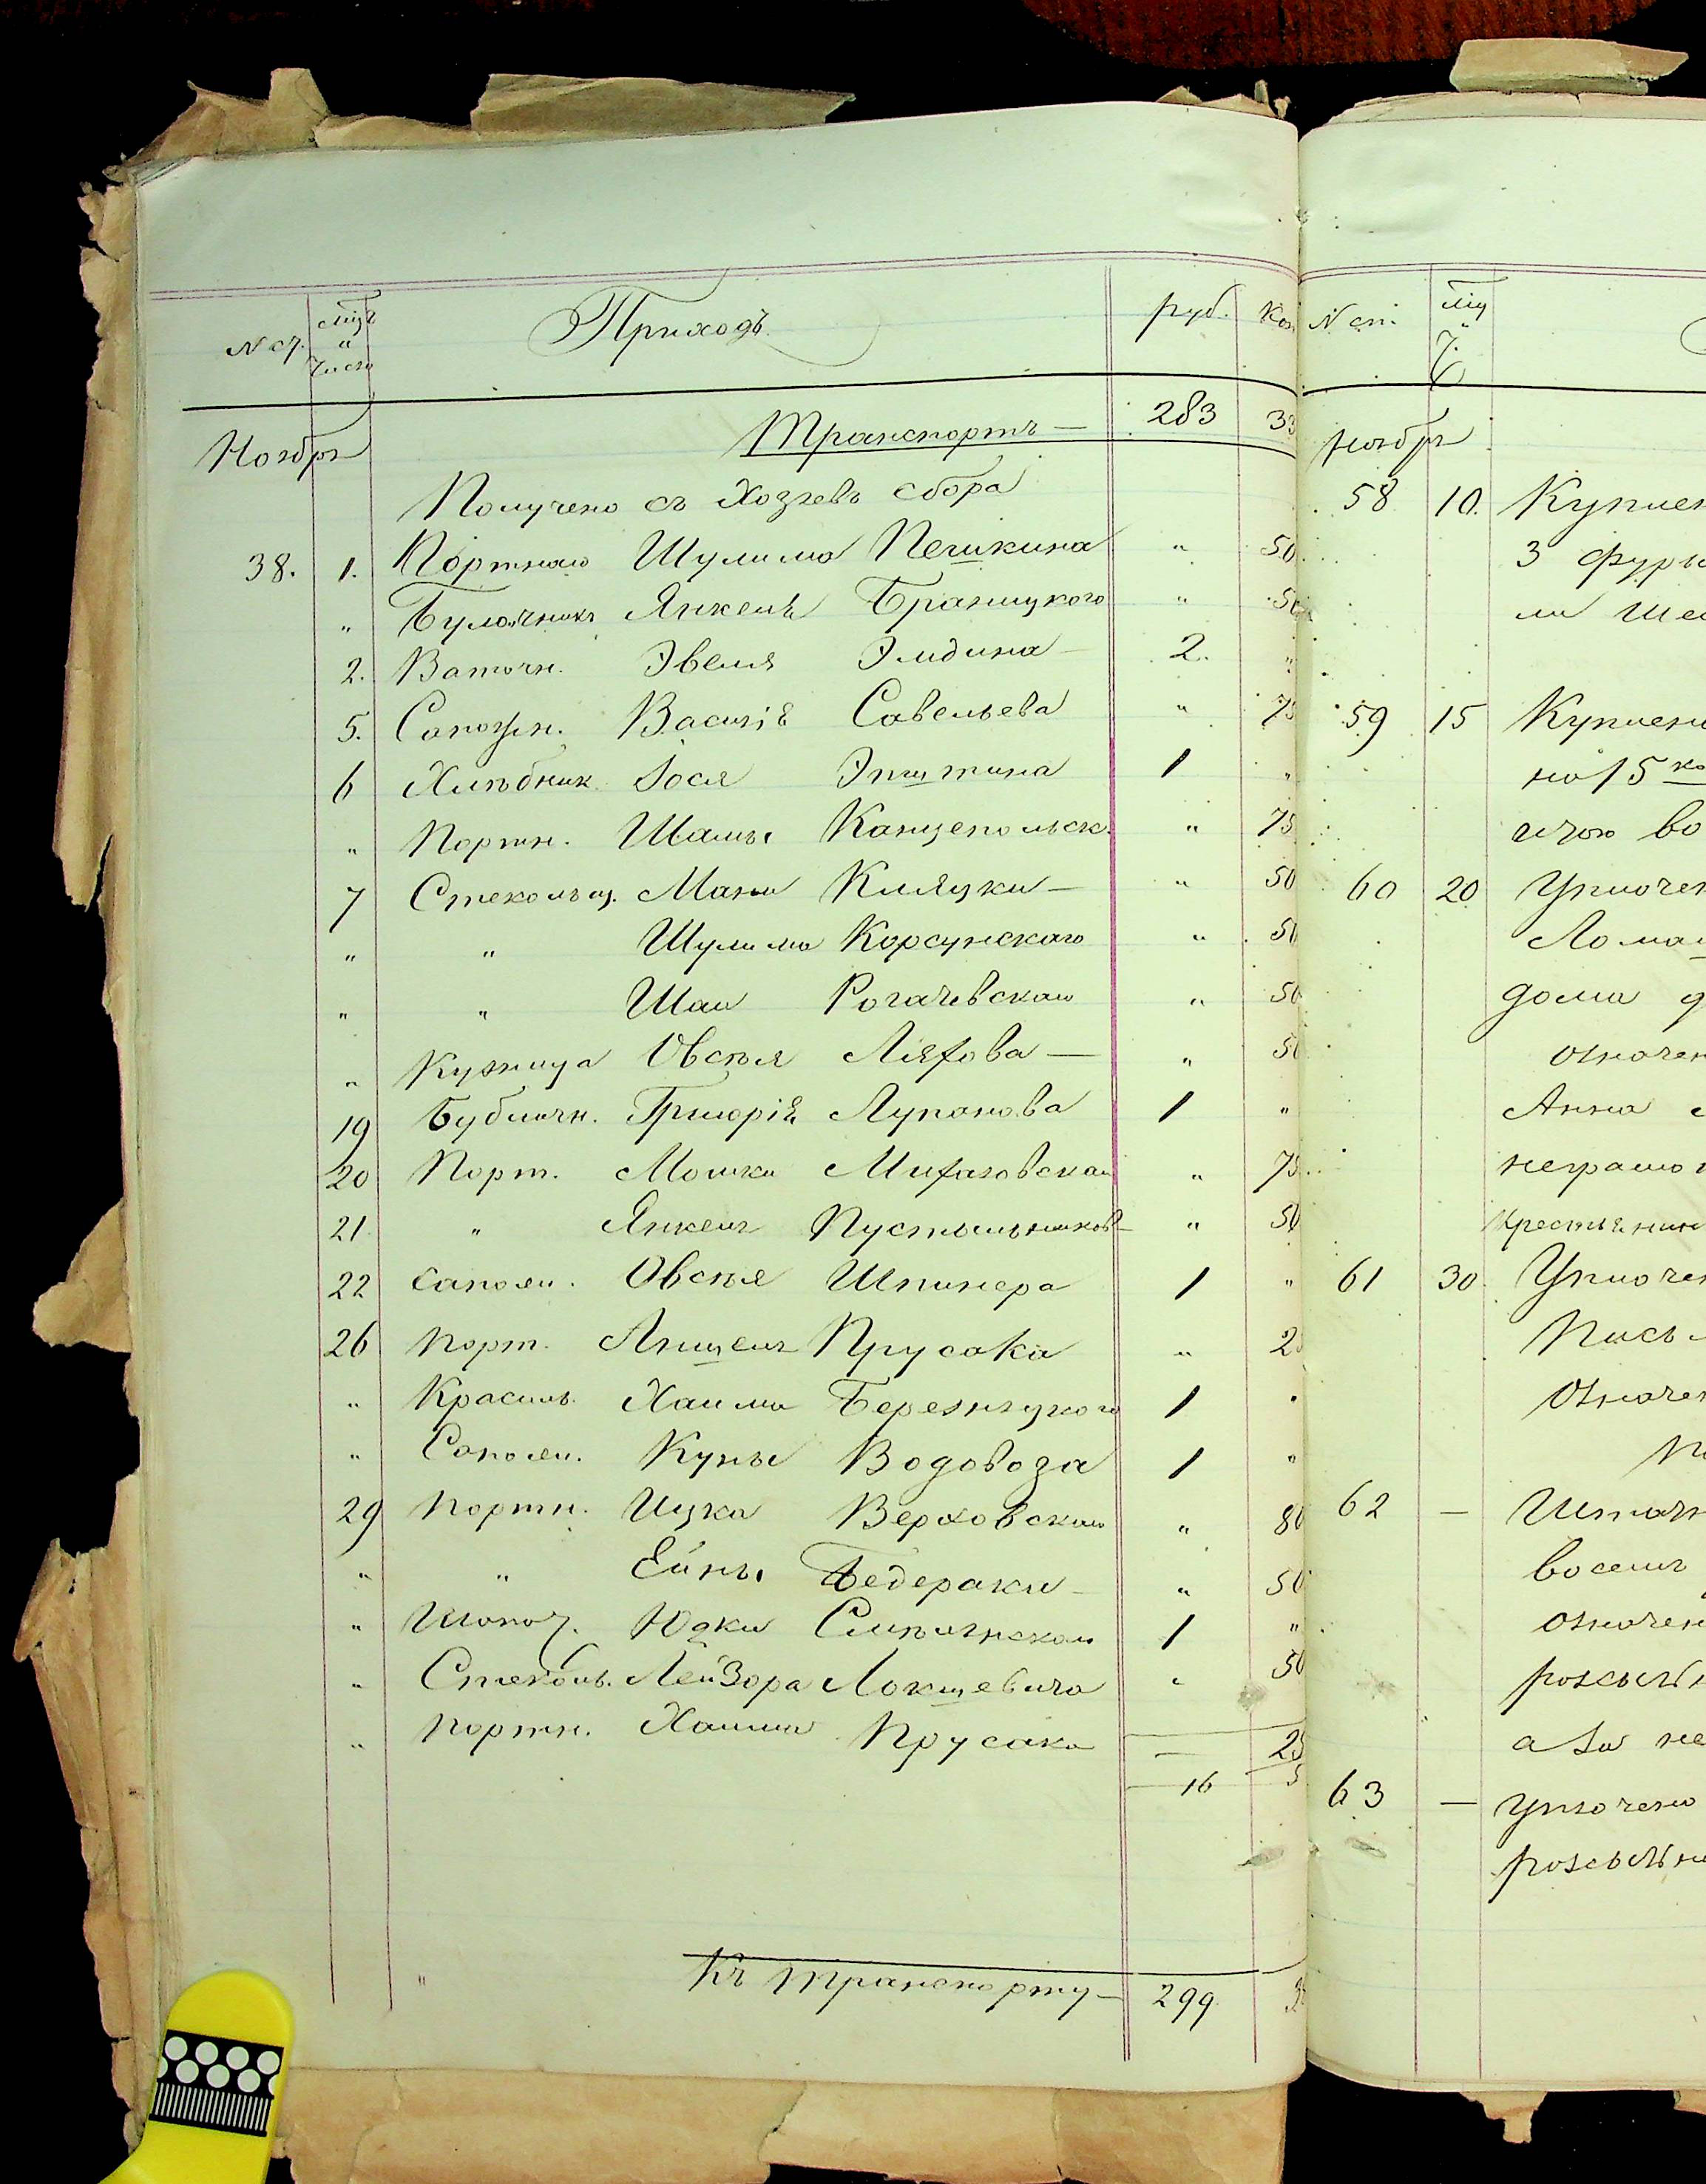 № ст. мцъ и число Приходъ руб. Коп
Ноябрь Транспортъ — 283 33
Получено съ Хозяевъ сбора
38. 1. Портнаго Шулима Печикина " 50
" Булочника Янкеля Браницкого " 50
2. Ваточн. Эвеля Элидина — 2. "
5. Сапожн. Василія Савельева " 75
6 Хлѣбник. Іося Эпштина 1 "
" Портн. Шаи Канцепольск. " 75
7 Стекольщ. Мани Кляцки — " 50
" " Шулима Корсунскаго " 50
" " Шаи Рогачевскаго " 50
" Кузница Овсѣя Ляхова — " 50
19 Бубличн. Григорія Лупанова 1 "
20 Порт. Мошки Михановскаго " 75
21 " Янкеля Пустыльников " 50
22 Сапожн. Овсѣя Шпинера 1 "
26 Порт. Аншеля Прусака " 25
" Красиль. Хаима Березняцкого 1 "
" Сапожн. Куны Водовоза 1 "
29 Портн. Ицка Верховскаго " 80
" " Ейны Бедераки — " 50
" Шапоч. Юдки Смѣлянскаго 1 "
" Стеколь. Лейзора Локшевича " 50
" Портн. Хаима Прусака — 25
16 5
" Къ транспорту — 299
№ ст. мцъ и ч.
Ноябрь
58 10. Куплен
3 фуры
ли
59 15 Куплено
на 15 ко
60 20 Уплочен
дома
Означен
Анна
неграмот
Крестьянин
61 30. Уплочен
Пись
Означен
62 —
восемь
означен
розсыльн
а за не
63 — Уплочено
розсыльн